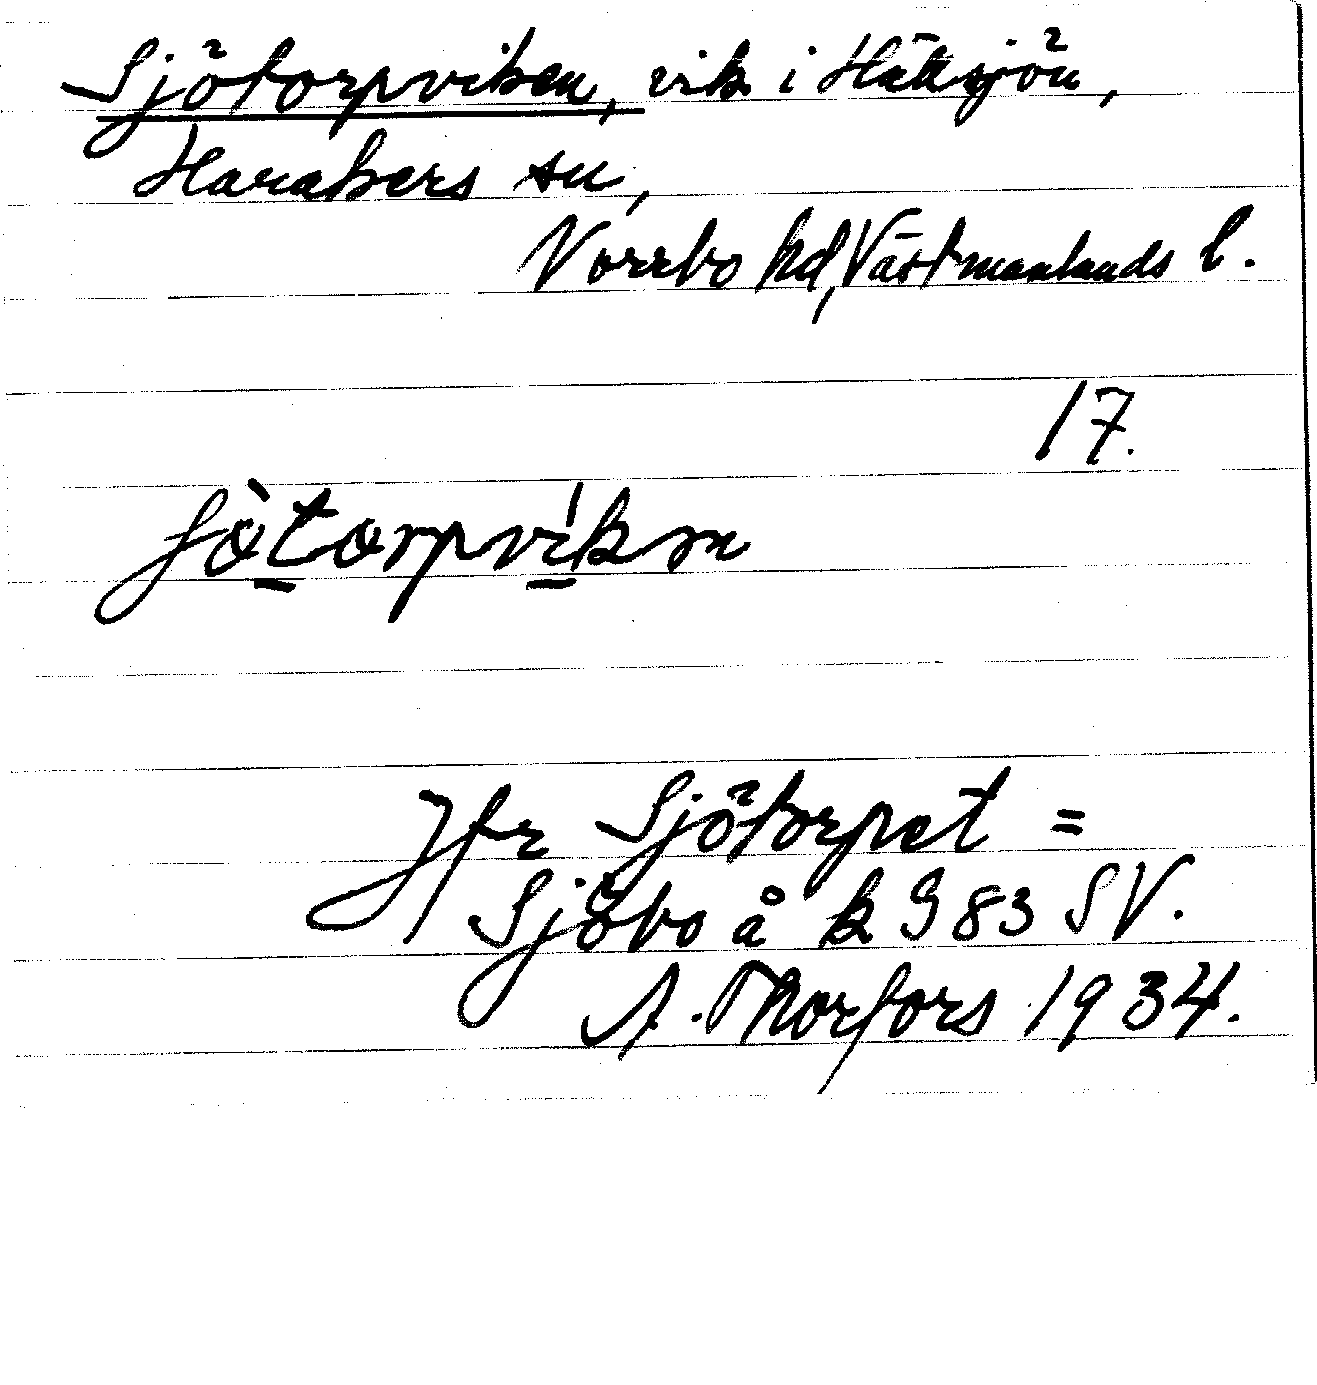 Sjötorpviken, vik i Hättsjön,
Harakers sn,
Norrbo hd, Västmanlands l.
17.
ʃö̀torpvíkən
Jfr Sjötorpet =
Sjöbo å k 983 SV.
A. Thorfors 1934.